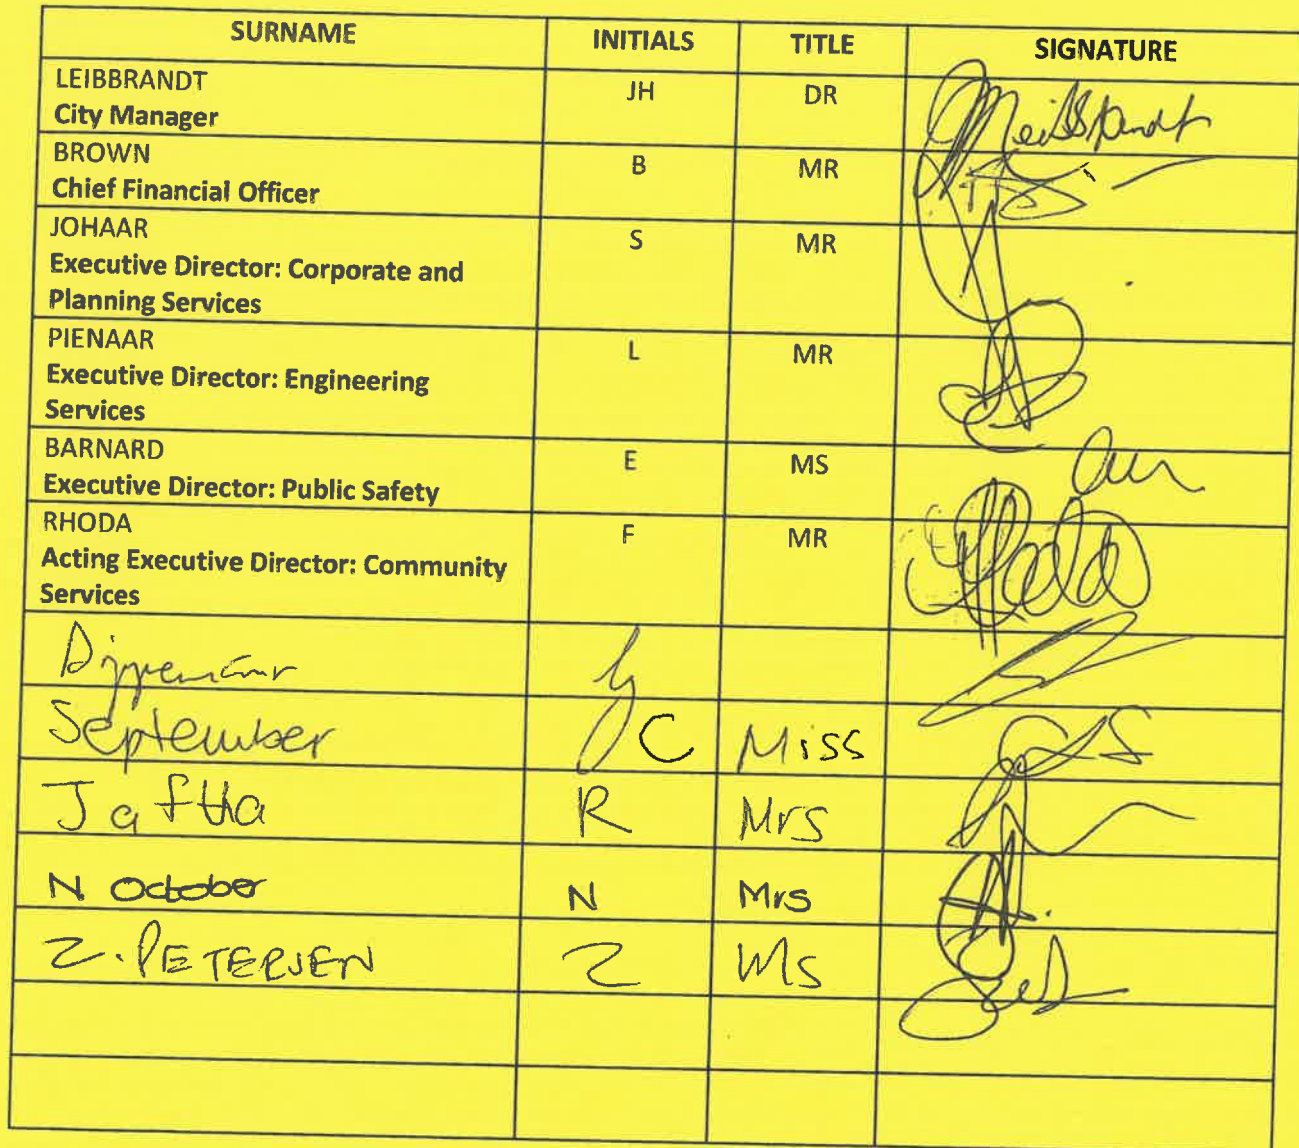 SURNAME INITIALS TITLE SIGNATURE
LEIBBRANDT JH DR
City Manager
BROWN B MR
Chief Financial Officer
JOHAAR S MR
Executive Director: Corporate and
Planning Services
PIENAAR L MR
Executive Director: Engineering
Services
BARNARD E MS
Executive Director: Public Safety
RHODA F MR
Acting Executive Director: Community
Services
September C Miss
Jaftha R Mrs
N October N Mrs
Z. PETERSEN Z Ms